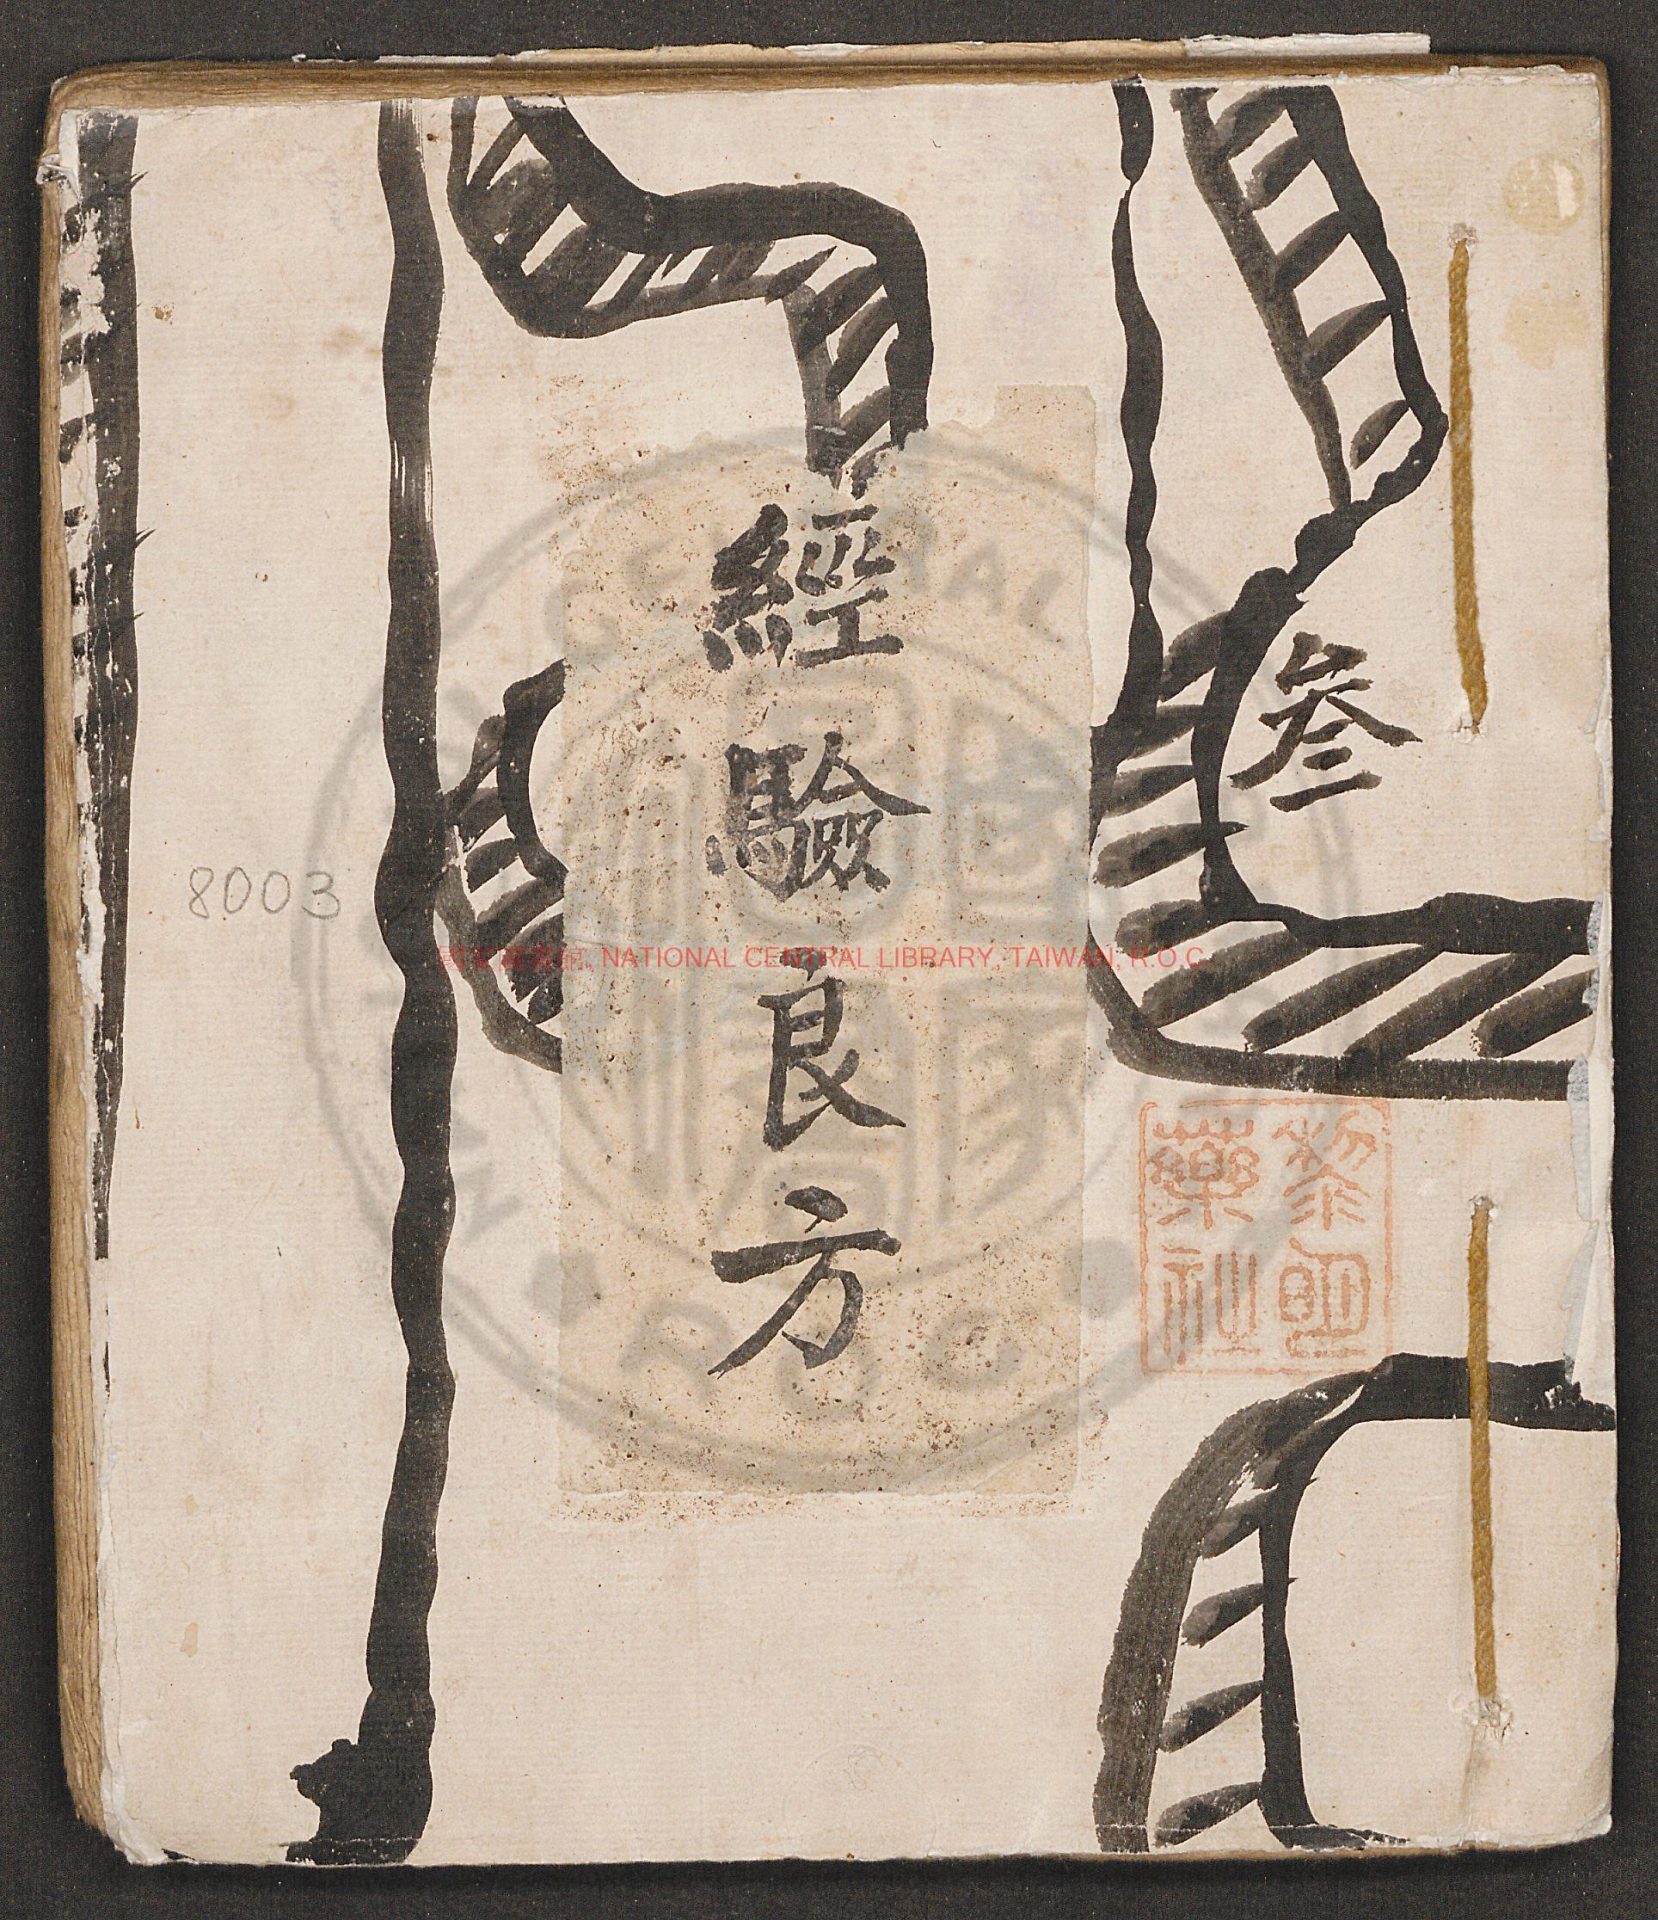 叁
經驗良方
黎明
藥社
8003
國家圖書館, NATIONAL CENTRAL LIBRARY, TAIWAN, R.O.C.